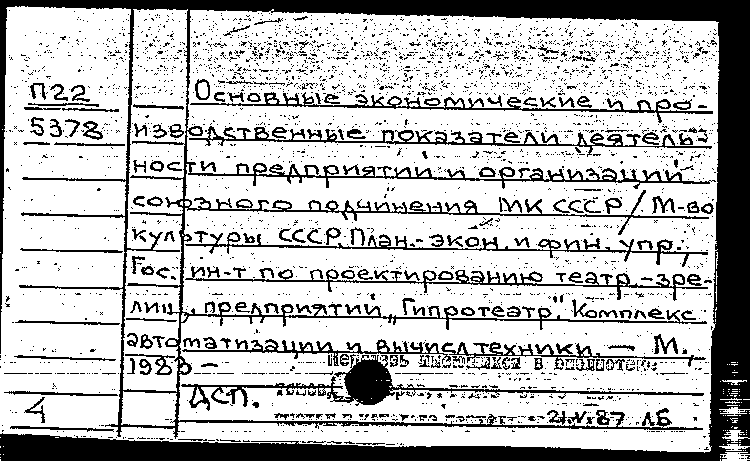 П22
5378
Основные экономические и про-
изводственные показатели деятель-
ности предприятий и организаций
союзного подчинения МК СССР / М-во
культуры СССР. План.-экон. и фин. упр.,
Гос. ин-т по проектированию театр.-зре-
лищ. предприятий „Гипротеатр". Комплекс
автоматизации и вычисл техники. — М.,
1983 –
в библиотеке:
ДСП.
4
21.IV.87 ЛБ